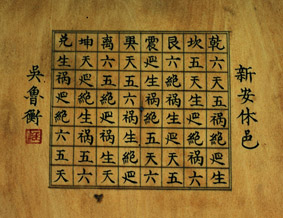 新安休邑
乾六天五祸絕延生
坎五天生延絕祸六
艮六絕祸生延天五
震延生祸絕五天六
巽天五六祸生絕延
离六五絕延祸生天
坤天延絕生祸五六
兑生祸延絕六五天
吳魯衡